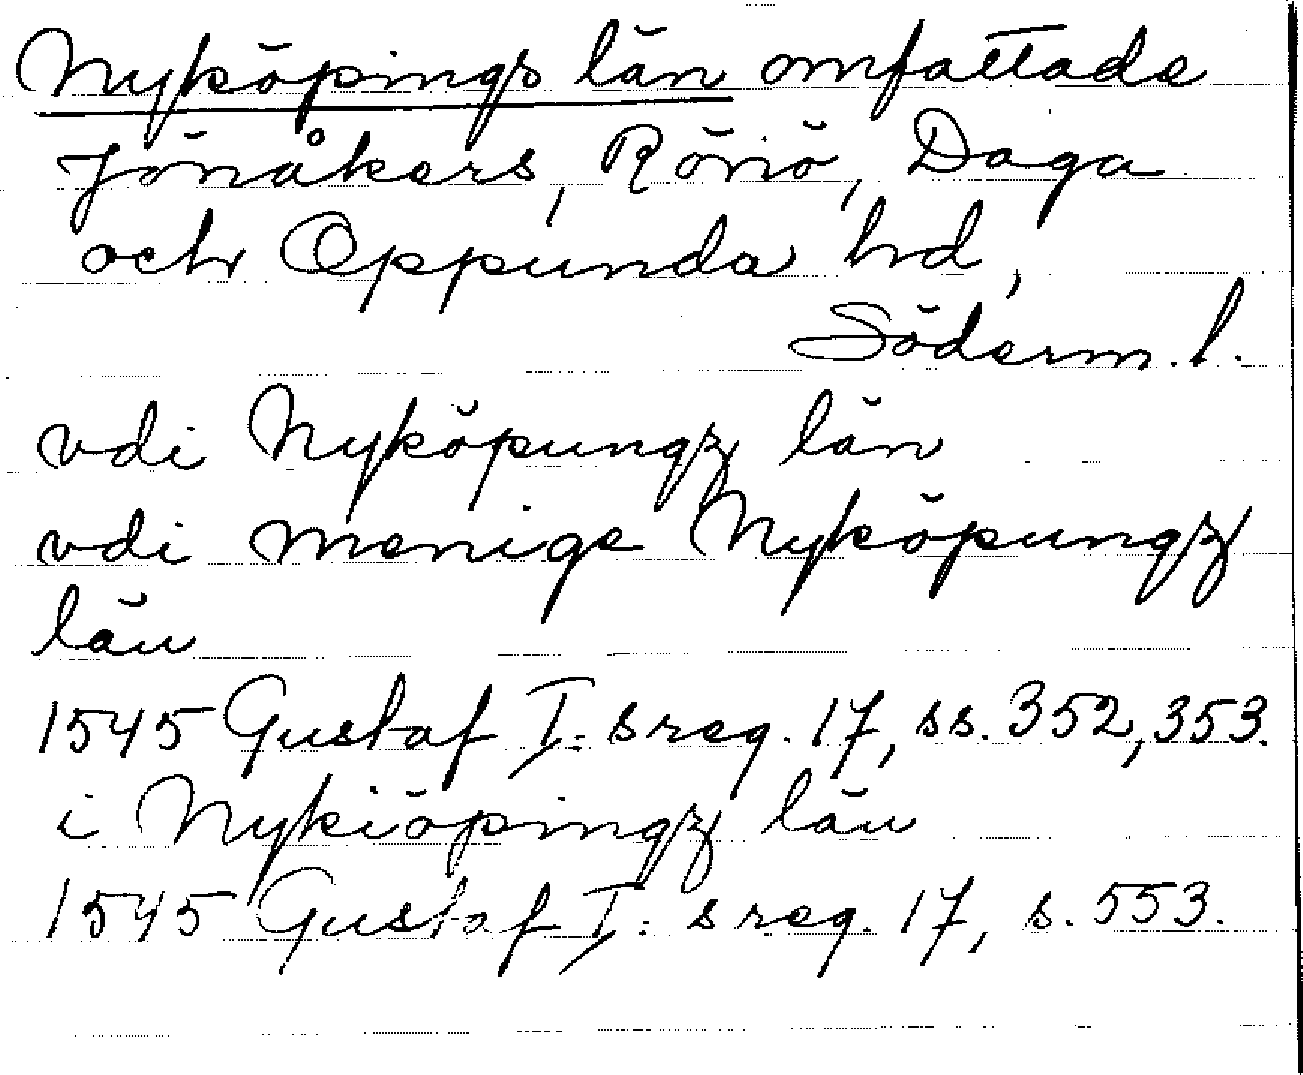 Nyköpings län omfattade
Jönåkers, Rönö, Daga
och Oppunda hd,
Söderm. l.
vdi Nyköpungz län
vdi menige Nyköpungz
län
1545 Gustaf I: s reg. 17, ss. 352, 353.
i Nykiöpingz län
1545 Gustaf I: s reg. 17, s. 553.